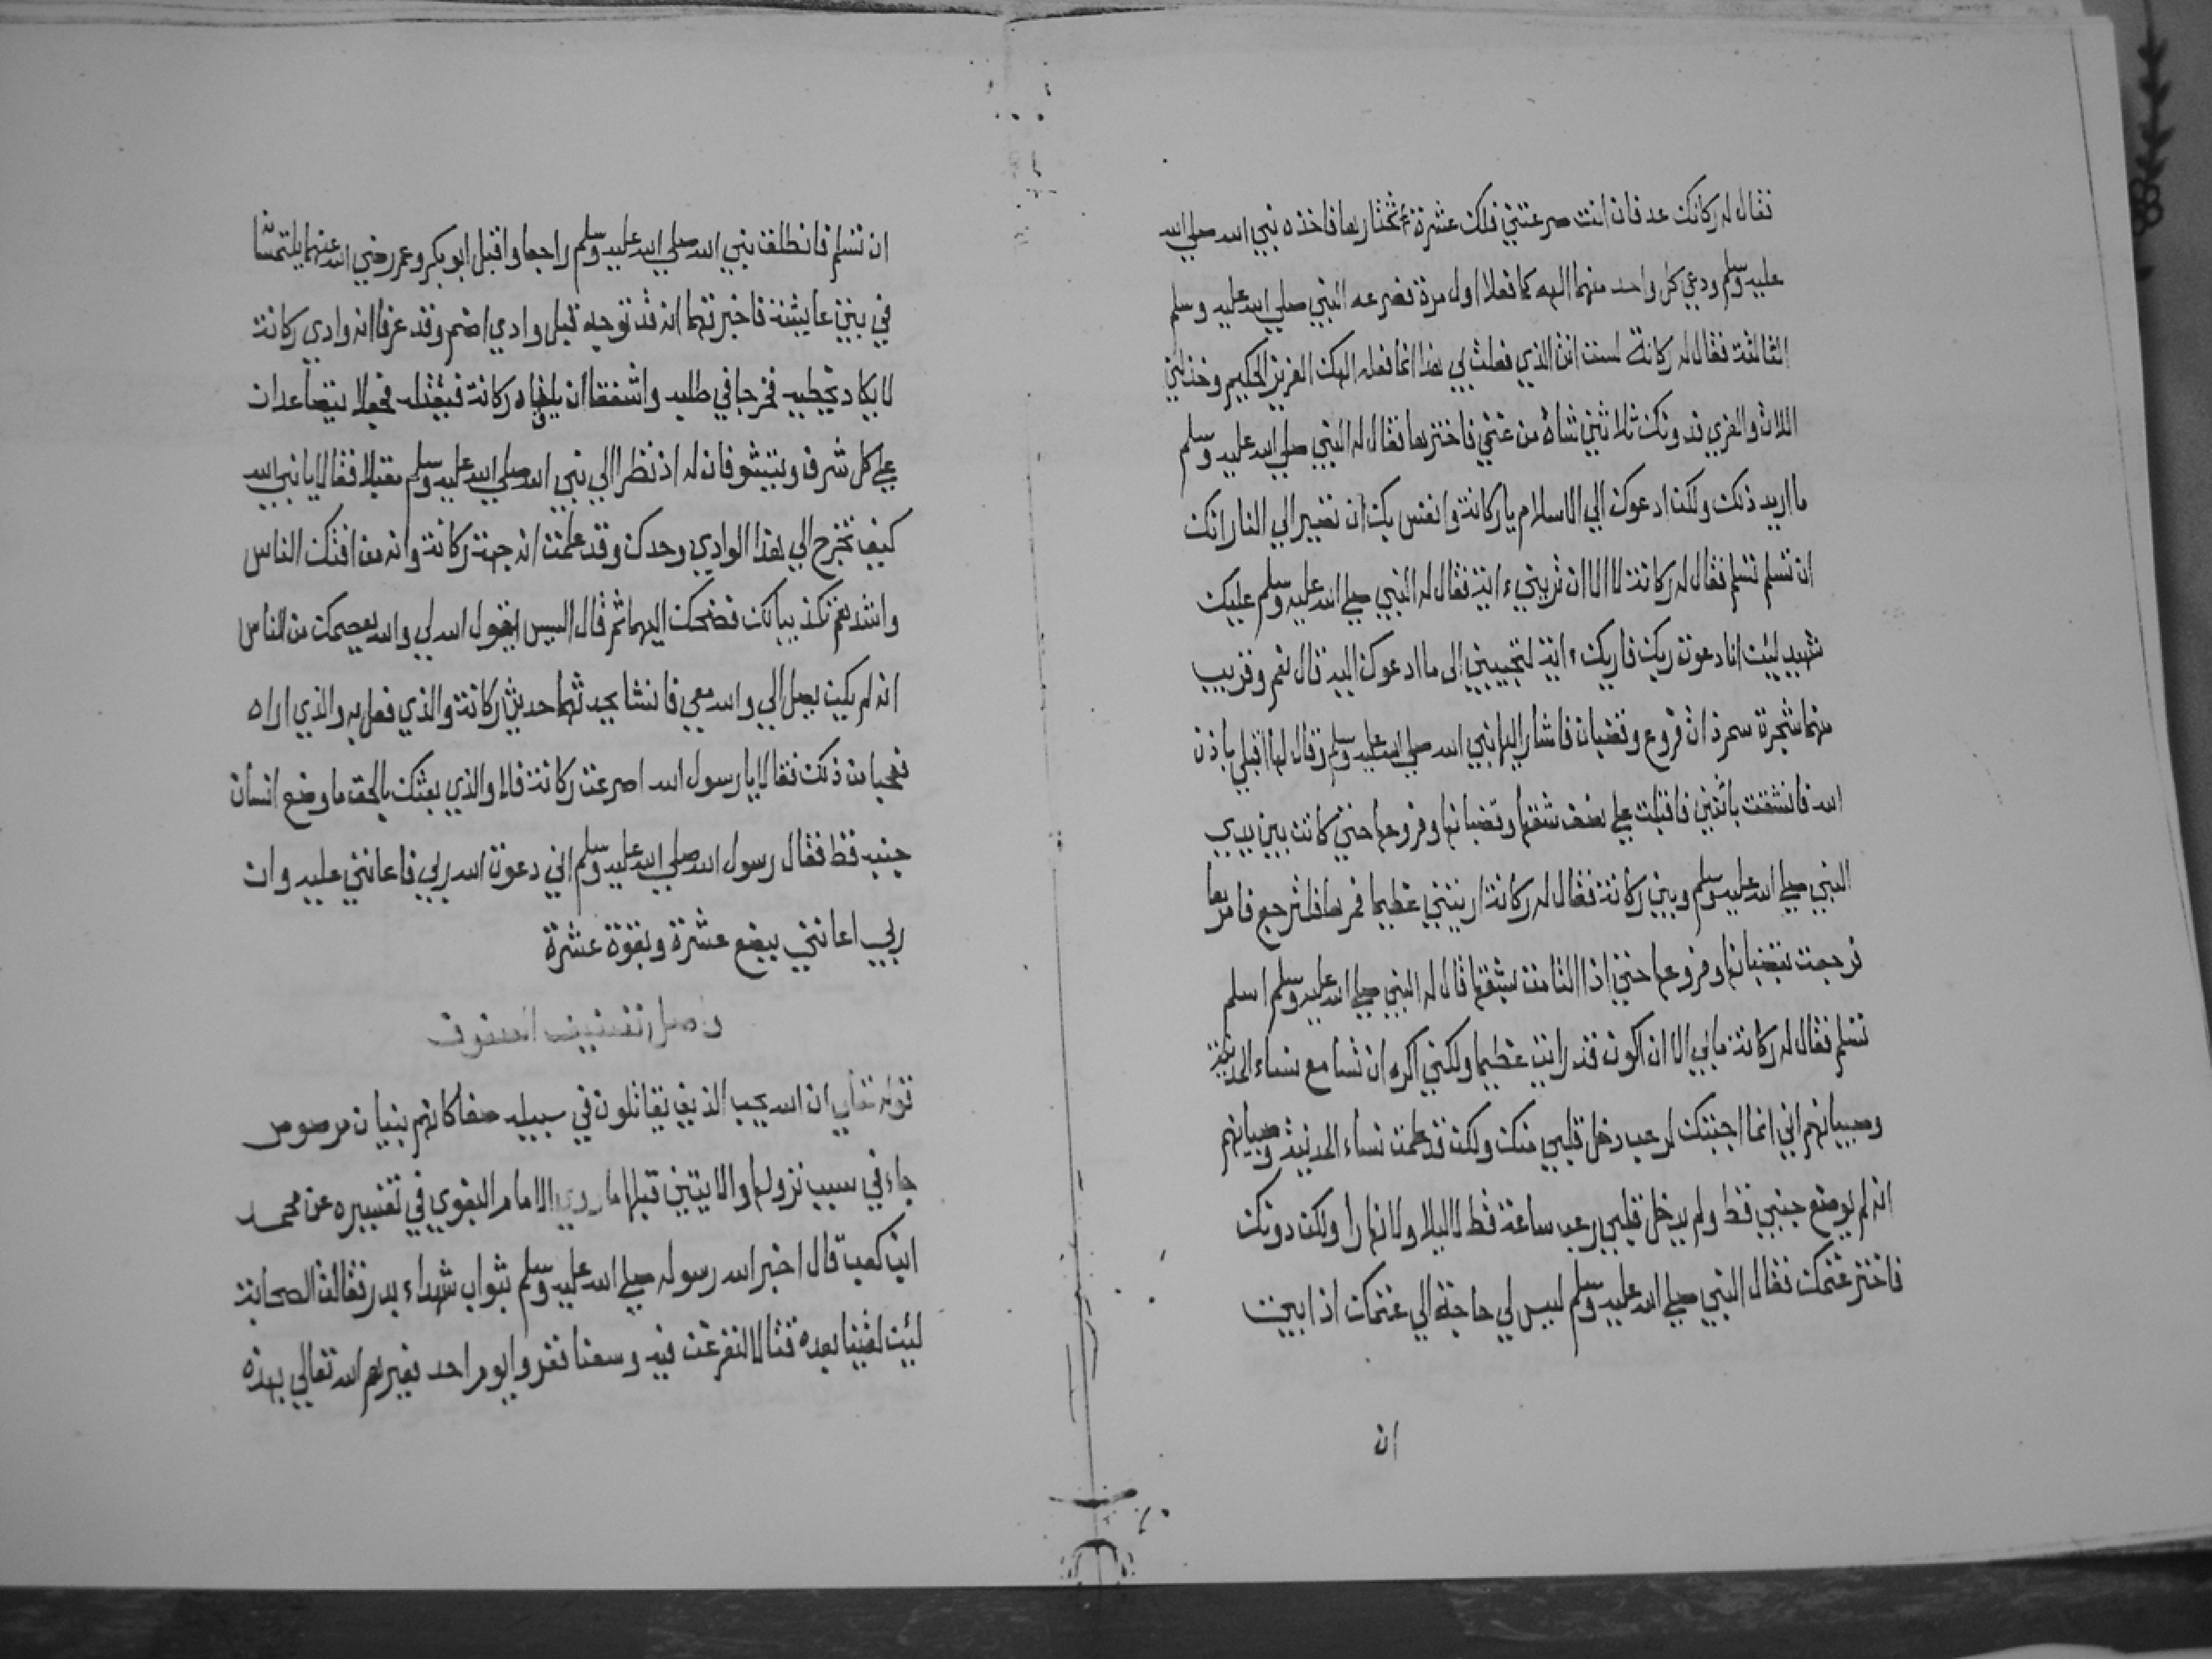 فقال له ركانك عد فان انت صرعتني فلك عشرة تختارها فاخذه نبي الله صلي الله
عليه وسلم ودعي كل واحد منهما الهه كما فعلا اول مرة فصرعه النبي صلي الله عليه وسلم
الثالثة فقال له ركانة لست انت الذي فعلت بي هذا انما فعله الهك العزيز الحكيم وخذلني
اللات والعزي فدونك ثلاثين شاة من غنمي فاخترها فقال له النبي صلي الله عليه وسلم
ما اريد ذلك ولكن ادعوك الي الاسلام يا ركانة وانفس بك ان تصير الي النار انك
ان تسلم تسلم فقال له ركانة لا الا ان تريني ءاية فقال له النبي صلي الله عليه وسلم عليك
شهيد لئن انا دعوت ربك فاريك ءاية لتجيبني الى ما ادعوك اليه قال نعم وقريب
منهما شجرة سمر ذات فروع وقضبان فاشار اليها نبي الله صلي الله عليه وسلم وقال لها اقبلي باذن
الله فانشقت باثنين فاقبلت علي نصف شقها وقضبانها وفروعها حتي كانت بين يدي
النبي صلي الله عليه وسلم وبين ركانة فقال له ركانة اريتني عظيما فمرها فلترجع فامرها
فرجعت بقضبانها وفروعها حتي اذا التامت بشقها قال له النبي صلي الله عليه وسلم اسلم
تسلم فقال له ركانة ما بي الا ان اكون قد رايت عظيما ولكني اكره ان تسامع نساء المدينة
وصبيانهم اني انما اجبتك لرعب دخل قلبي منك ولكن قد علمت نساء المدينة وصبيانهم
انه لم يوضع جنبي قط ولم يدخل قلبي رعب ساعة قط لا ليلا ولا نهارا ولكن دونك
فاختر غنمك فقال النبي صلي الله عليه وسلم ليس لي حاجة الي غنمك اذا ابيت
ان
ان تسلم فانطلق نبي الله صلي الله عليه وسلم راجعا واقبل ابو بكر وعمر رضي الله عنهما يلتمسا
في بيت عايشة فاخبرتهما انه قد توجه قبل وادي اضم وقد عرفا انه وادي ركانة
لا يكاد يخطيه فخرجا في طلبه واشفقا ان يلقاه ركانة فيقتله فجعلا يتصاعدان
علي كل شرف ويتشوفان له اذ نظرا الي نبي الله صلي الله عليه وسلم مقبلا فقالا يا نبي الله
كيف تخرج الي هذا الوادي وحدك وقد علمت انه جهة ركانة وانه من افتك الناس
واشدهم تكذيبا لك فضحك اليهما ثم قال اليس يقول الله لي والله يعصمك من الناس
انه لم يكن يصل الي والله معي فانشا يحدثهما حديث ركانة والذي فعل به والذي اراه
فعجبا من ذلك فقالا يا رسول الله اصرعت ركانة فلا والذي بعثك بالحق ما وضع انسان
جنبه قط فقال رسول الله صلي الله عليه وسلم اني دعوت الله ربي فاعانني عليه وان
ربي اعانني ببضع عشرة وبقوة عشرة
واصل تصنيف الصفوف
قوله تعالي ان الله يحب الذين يقاتلون في سبيله صفا كانهم بنيان مرصوص
جاء في سبب نزولها والايتين قبلها ما روي الامام البغوي في تفسيره عن محمد
ابن كعب قال اخبر الله رسوله صلي الله عليه وسلم بثواب شهداء بدر فقالت الصحابة
لئن لقينا بعده قتالا لنفرغن فيه وسعنا ففروا يوم احد فعيرهم الله تعالي بهذه